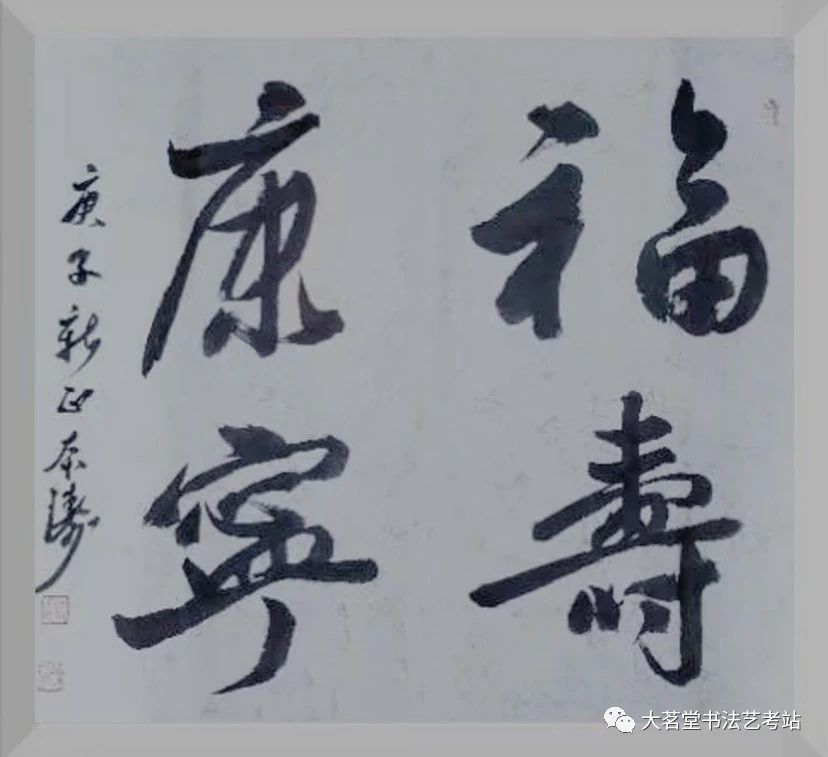 福壽
康寧
庚子新正本濤
大茗堂书法艺考站